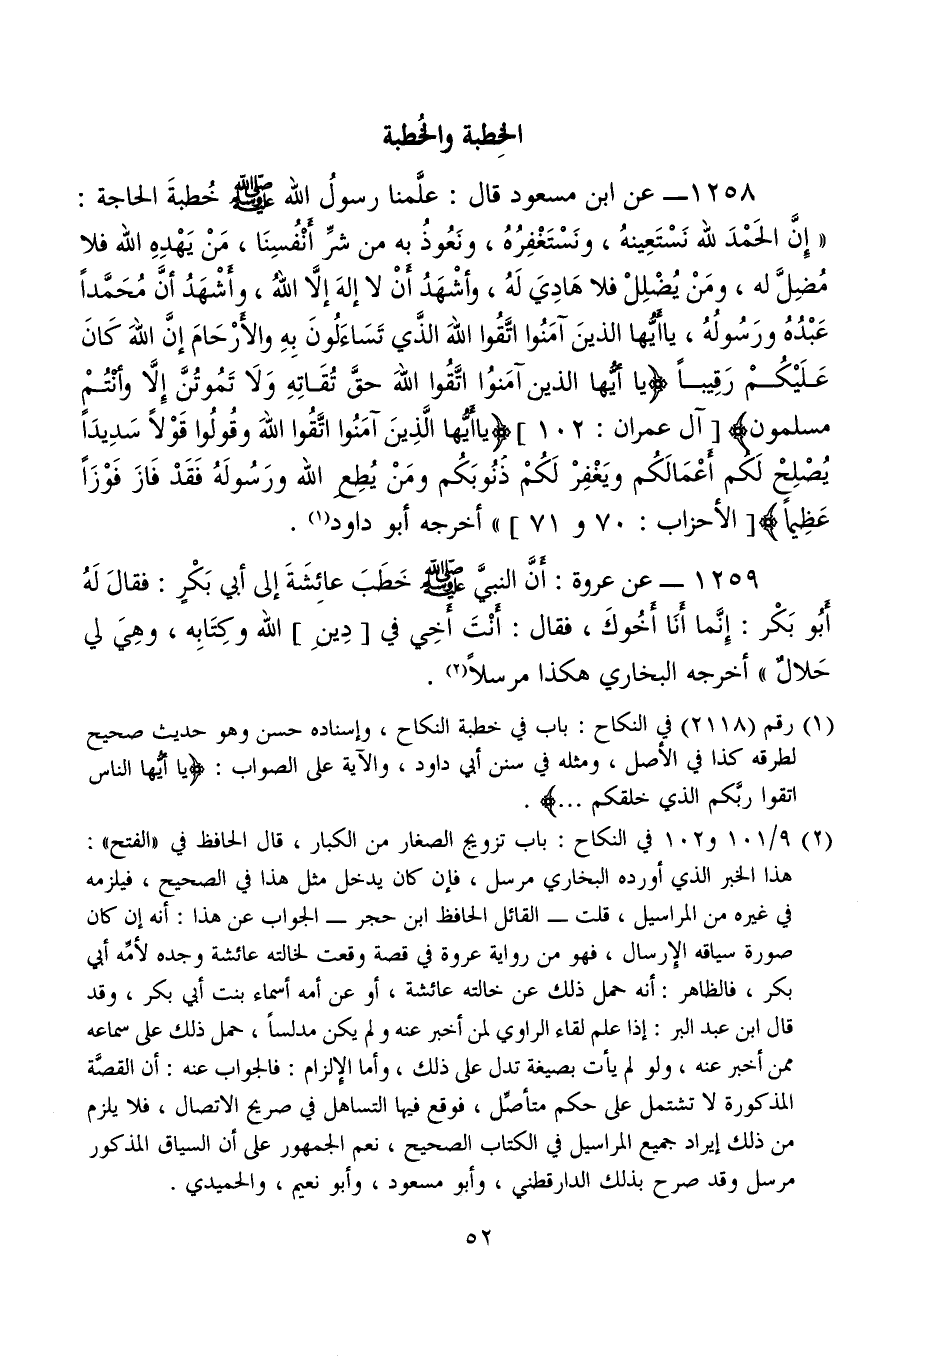 الخِطبة والخُطبة
١٢٥٨ــ عن ابن مسعود قال : علَّمنا رسولُ الله ﷺ خُطبةَ الحاجة :
« إِنَّ الحَمْدَ لله نَسْتَعِينهُ ، ونَسْتَغْفِرُهُ ، ونَعُوذُ به من شرِّ أَنْفُسِنَا ، مَنْ يَهْدِهِ الله فلا
مُضِلَّ له ، ومَنْ يُضْلِلْ فلا هَادِيَ لَهُ ، وأشْهَدُ أَنْ لا إلهَ إلَّا اللهُ ، وأَشْهَدُ أنَّ مُحَمَّداً
عَبْدُهُ ورَسُولُهُ ، ياأَيُّها الذينَ آمَنُوا اتَّقُوا اللهَ الذَّي تَسَاءَلُونَ بِهِ والأرْحَامَ إنَّ اللهَ كَانَ
عَلَيْكُمْ رَقِيباً ﴿يا أيُّها الذين آمنوُا اتَّقُوا اللهَ حقَّ تُقَاتِهِ وَلَا تَمُوتُنَّ إلَّا وأنْتُم
مسلمون﴾ [ آل عمران : ١٠٢ ]﴿ياأَيُّها الَّذِينَ آمَنُوا اتَّقُوا اللهَ وقُولُوا قَوْلاً سَدِيدَاً
يُصْلِحْ لَكُم أَعْمَالَكُم ويَغْفِرْ لَكُمْ ذُنُوبَكُم ومَنْ يُطِعِ الله ورَسُولَهُ فَقَدْ فَازَ فَوْزَاً
عَظِيماً﴾[ الأحزاب : ٧٠ و ٧١ ]» أخرجه أبو داود(١) .
١٢٥٩ ــ عن عروة : أَنَّ النبيَّ ﷺ خَطَبَ عائِشَةَ إلى أبي بَكْرٍ : فقالَ لَهُ
أَبُو بَكْر : إنَّما أنَا أَخُوكَ ، فقال : أَنْتَ أَخِي في [ دِينِ ] الله وكِتَابِه ، وهِيَ لي
حَلالٌ » أخرجه البخاري هكذا مرسلاً(٢) .
(١) رقم (٢١١٨) في النكاح : باب في خطبة النكاح ، وإسناده حسن وهو حديث صحيح
لطرقه كذا في الأصل ، ومثله في سنن أبي داود ، والآية على الصواب : ﴿يا أيُّها الناس
اتقوا ربَّكم الذي خلقكم ...﴾ .
(٢) ١٠١/٩ و١٠٢ في النكاح : باب تزويج الصغار من الكبار ، قال الحافظ في «الفتح» :
هذا الخبر الذي أورده البخاري مرسل ، فإن كان يدخل مثل هذا في الصحيح ، فيلزمه
في غيره من المراسيل ، قلت ــ القائل الحافظ ابن حجر ــ الجواب عن هذا : أنه إن كان
صورة سياقه الإرسال ، فهو من رواية عروة في قصة وقعت لخالته عائشة وجده لأمِّه أبي
بكر ، فالظاهر : أنه حمل ذلك عن خالته عائشة ، أو عن أمه أسماء بنت أبي بكر ، وقد
قال ابن عبد البر : إذا علم لقاء الراوي لمن أخبر عنه ولم يكن مدلساً ، حمل ذلك على سماعه
ممن أخبر عنه ، ولو لم يأت بصيغة تدل على ذلك ، وأما الإلزام : فالجواب عنه : أن القصَّة
المذكورة لا تشتمل على حكم متأصِّل ، فوقع فيها التساهل في صريح الاتصال ، فلا يلزم
من ذلك إيراد جميع المراسيل في الكتاب الصحيح ، نعم الجمهور على أن السياق المذكور
مرسل وقد صرح بذلك الدارقطني ، وأبو مسعود ، وأبو نعيم ، والحميدي .
٥٢